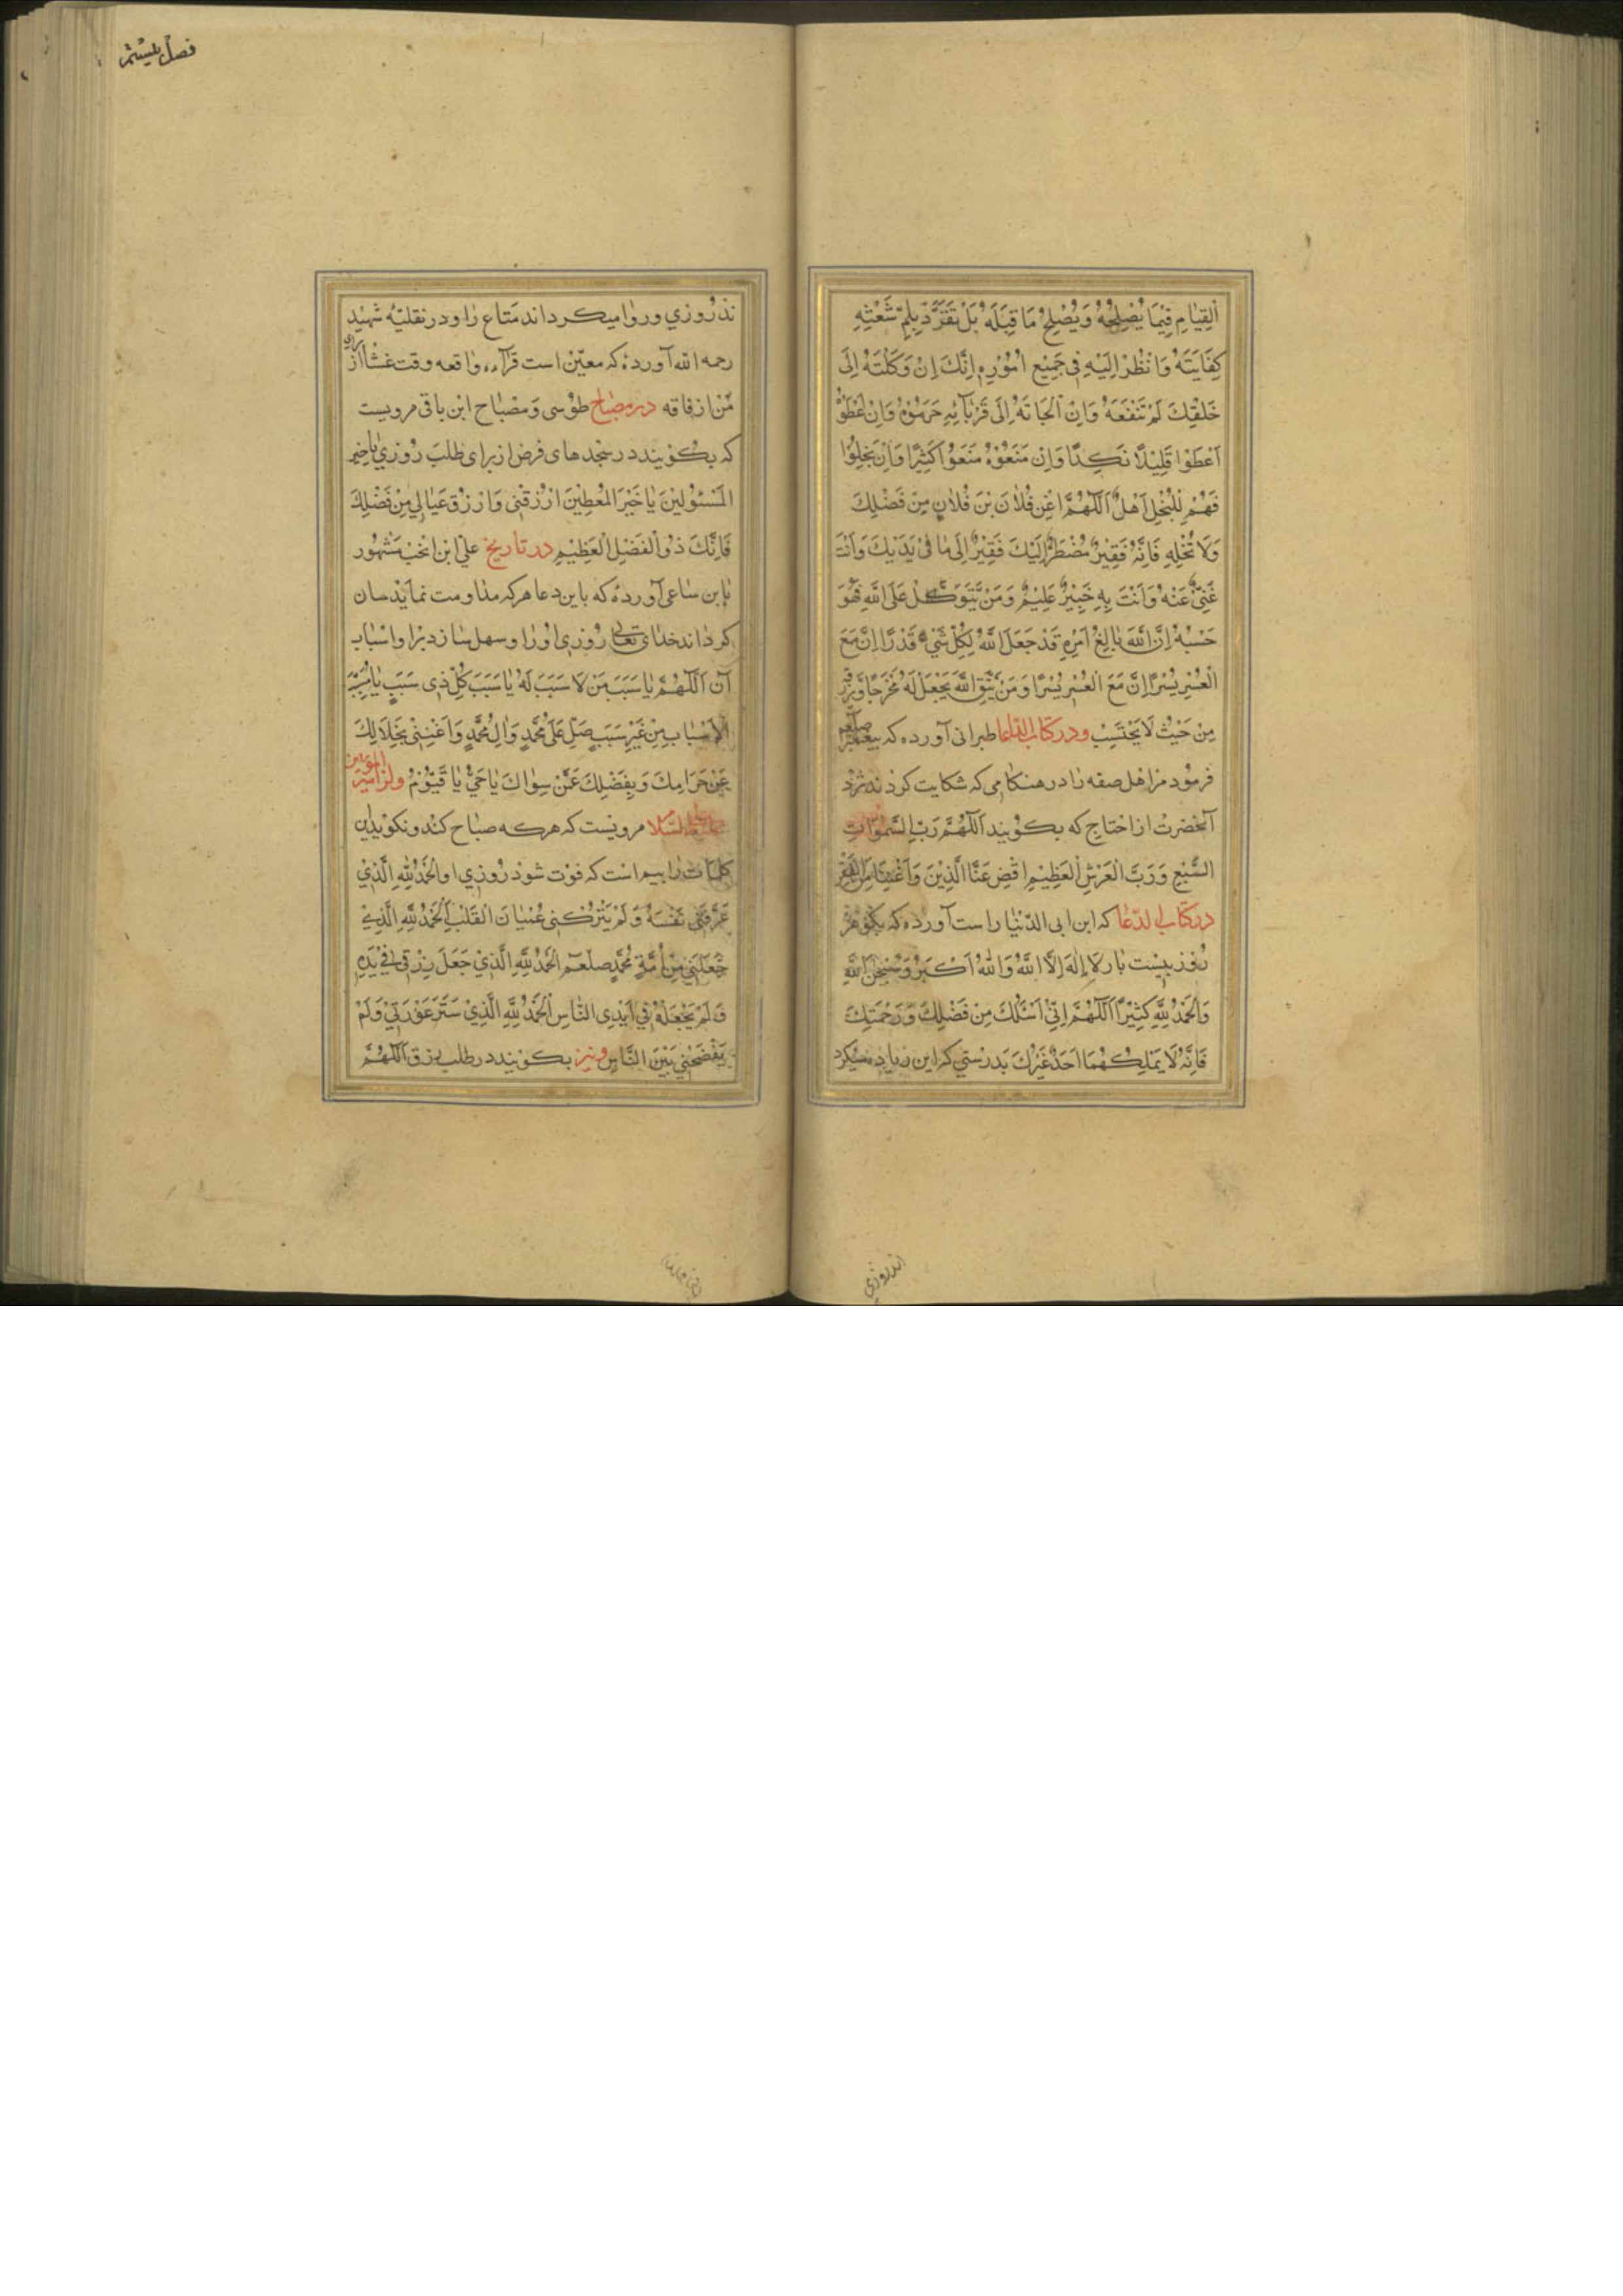 اَلْقِيٰامِ فِيْمَا يُصْلِحُهُ وَيُصْلِحْ مَا قِبَلَهُ بَلْ تَفَرَّدْ بِلَمِّ شَعْثِهِ
كِفَايَتَهُ وَانْظُرْ اِلَيْهِ فِى جَمِيْعِ اُمُوْرِهِ اِنَّكَ اِنْ وَكَلْتَهُ اِلَى
خَلْقِكَ لَمْ تَنْفَعَهُ وَاِنْ اَلْجَاتَهُ اِلَى قَرْبَآئِهِ حَرَمُوْهُ وَاِنْ اَعْطَوْا
اَعْطَوْا قَلِيْلاً نَكِدًا وَاِنْ مَنَعُوْهُ مَنَعُوْا كَثِيْرًا وَاِنْ بَخِلُوْا
فَهُمْ لِلْبُخْلِ اَهْلٌ اَللّٰهُمَّ اغْنِ فُلاٰنَ بْنَ فُلاٰنٍ مِنْ فَضْلِكَ
وَلَا تُخْلِهِ فَاِنَّهُ فَقِيْرٌ مُضْطَرٌّ اِلَيْكَ فَقِيْرٌ اِلَى مٰا فِىْ يَدَيْكَ وَاَنْتَ
غَنِىٌّ عَنْهُ وَاَنْتَ بِهِ خَبِيْرٌ عَلِيْمٌ وَمَنْ يَتَوَكَّلْ عَلَى اللّٰهِ فَهُوَ
حَسْبُهُ اِنَّ اللّٰهَ بٰالِغُ اَمْرِهِ قَدْ جَعَلَ اللّٰهُ لِكُلِّ شَىْءٍ قَدْرًا اِنَّ مَعَ
الْعُسْرِ يُسْرًا اِنَّ مَعَ الْعُسْرِ يُسْرًا وَمَنْ يَتَّقِ اللّٰهَ يَجْعَلْ لَهُ مَخْرَجًا وَيَرْزُقْهُ
مِنْ حَيْثُ لَا يَحْتَسِبْ ودر كتاب الدّعا طبرانى آورده كه پيغمبر صلعم
فرمود مر اهل صفه را در هنكامى كه شكايت كردند نزد
آنحضرت از احتاج كه بكويند اَللّٰهُمَّ رَبَّ السَّمٰوَاتِ
السَّبْعِ وَرَبَّ الْعَرْشِ الْعَظِيْمِ اقْضِ عَنَّا الَّدِيْنَ وَاَغْنِنَا مِنَ الْفَقْرِ
در كتاب الدّعا كه ابن ابى الدّنيا راست آورده كه بكو هر
روز بيست بار لا اِلٰهَ اِلَّا اللّٰهُ وَاللّٰهُ اَكْبَرُ وَسُبْحٰنَ اللّٰهِ
وَالْحَمْدُ لِلّٰهِ كَثِيْرًا اَللّٰهُمَّ اِنِّىْ اَسْئَلُكَ مِنْ فَضْلِكَ وَرَحْمَتِكَ
فَاِنَّهُ لَا يَمْلِكُهُمَا اَحَدٌ غَيْرُكَ بدرستى كه اين زياده ميكرد
اندروزي
فصل بيستم
ندروزي وروا ميكرداند متاع را ودر نقليّه شهيد
رحمه الله آورده كه معيّن است قرآءه واقعه وقت عشا از براى
من از فاقه در مصباح طوسى ومصباح ابن باقى مرويست
كه بكويند در سجدهاى فرض از براى طلب روزي يا خير
الْمَسْئُوْلِيْنَ يٰا خَيْرَ الْمُعْطِيْنَ ارْزُقْنِى وَارْزُقْ عِيٰالِي مِنْ فَضْلِكَ
فَاِنَّكَ ذُوالْفَضْلِ الْعَظِيْمِ در تاريخ على ابن انجب مشهور
بابن ساعى آورده كه باين دعا هركه مداومت نمايد سان
كرداند خداى تعالى روزى اورا وسهل سازد براو اسباب
آن اَللّٰهُمَّ يٰا سَبَبَ مَنْ لَا سَبَبَ لَهُ يٰا سَبَبَ كُلِّ ذِى سَبَبٍ يٰا مُسَبِّبَ
الْاَسْبٰابِ مِنْ غَيْرِ سَبَبٍ صَلِّ عَلَى مُحَمَّدٍ وَاٰلِ مُحَمَّدٍ وَاَغْنِنِى بِحَلَالِكَ
عَنْ حَرَامِكَ وَبِفَضْلِكَ عَمَّنْ سِوٰاكَ يٰا حَيُّ يٰا قَيُّوْمُ واز امير المؤمنين
عليه السلام مرويست كه هركه صباح كند ونكويد اين
كلمات را بيم است كه فوت شود روزي او اَلْحَمْدُ لِلّٰهِ الَّذِي
عَرَّفَنِى نَفْسَهُ وَلَمْ يَتْرُكْنِى عُمْيٰانَ الْقَلْبِ اَلْحَمْدُ لِلّٰهِ الَّذِىْ
جَعَلَنِىْ مِنْ اُمَّةِ مُحَمَّدٍ صلعم اَلْحَمْدُ لِلّٰهِ الَّذِيْ جَعَلَ رِزْقِى فِيْ يَدِهِ
وَلَمْ يَجْعَلْهُ فِي اَيْدِى النّٰاسِ اَلْحَمْدُ لِلّٰهِ الَّذِيْ سَتَرَ عَوْرَتِيْ وَلَمْ
يَفْضَحْنِي بَيْنَ النَّاسِ ونيز بكويند در طلب رزق اَللّٰهُمَّ